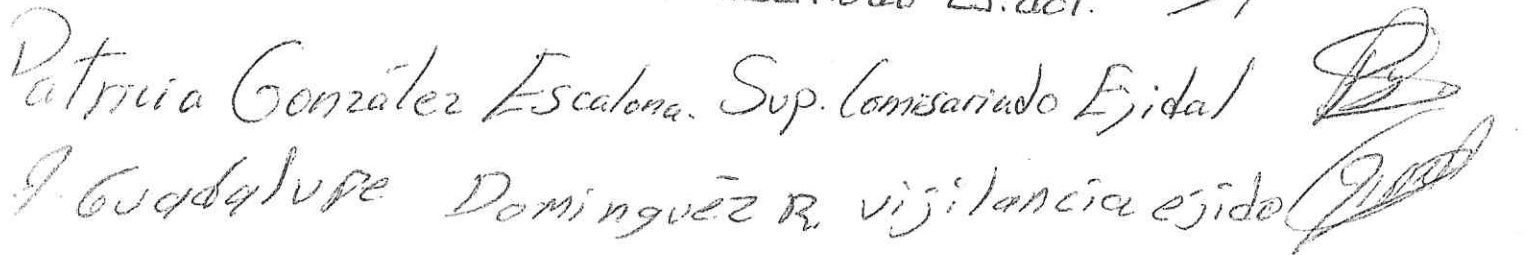 Patricia González Escalona. Sup. Comisariado Ejidal
J. Guadalupe Dominguéz R. vijilancia ejido